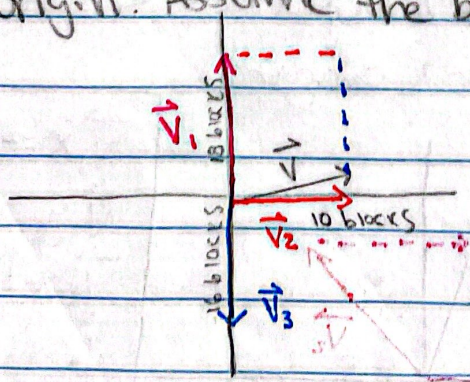 origin. Assume the b
V₁
18 blocks
V
10 blocks
V₂
16 blocks
V₃